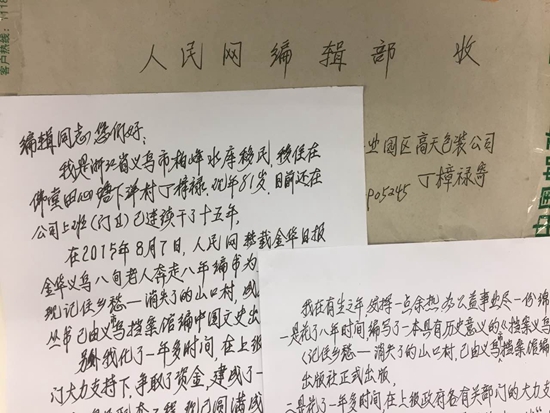 客户热线：
人民网编辑部 收
业园区高天包装公司
丁樟禄寄
编辑同志，您们好：
我是浙江省义乌市柏峰水库移民，移住在
佛堂田心塔下洋村丁樟禄，现年81岁，目前还在
公司上班（门卫）已连续干了十五年。
在2015年8月7日，人民网转载金华日报
金华义乌八旬老人奔走八年编书为
现记住乡愁——消失了的山口村，
丛书已由义乌档案馆编中国文史出
另外我化了一年多时间，在上级
门大力支持下，争取了资金，建成了一
我在有生之年，发挥一点余热，办公益事业尽一份绵
一是花了八年时间编写了一本具有历史意义的《档案义乌
（记住乡愁——消失了的山口村，已由义乌档案馆编
出版社正式出版。
二是花了一年多时间，在上级政府各有关部门的大力支